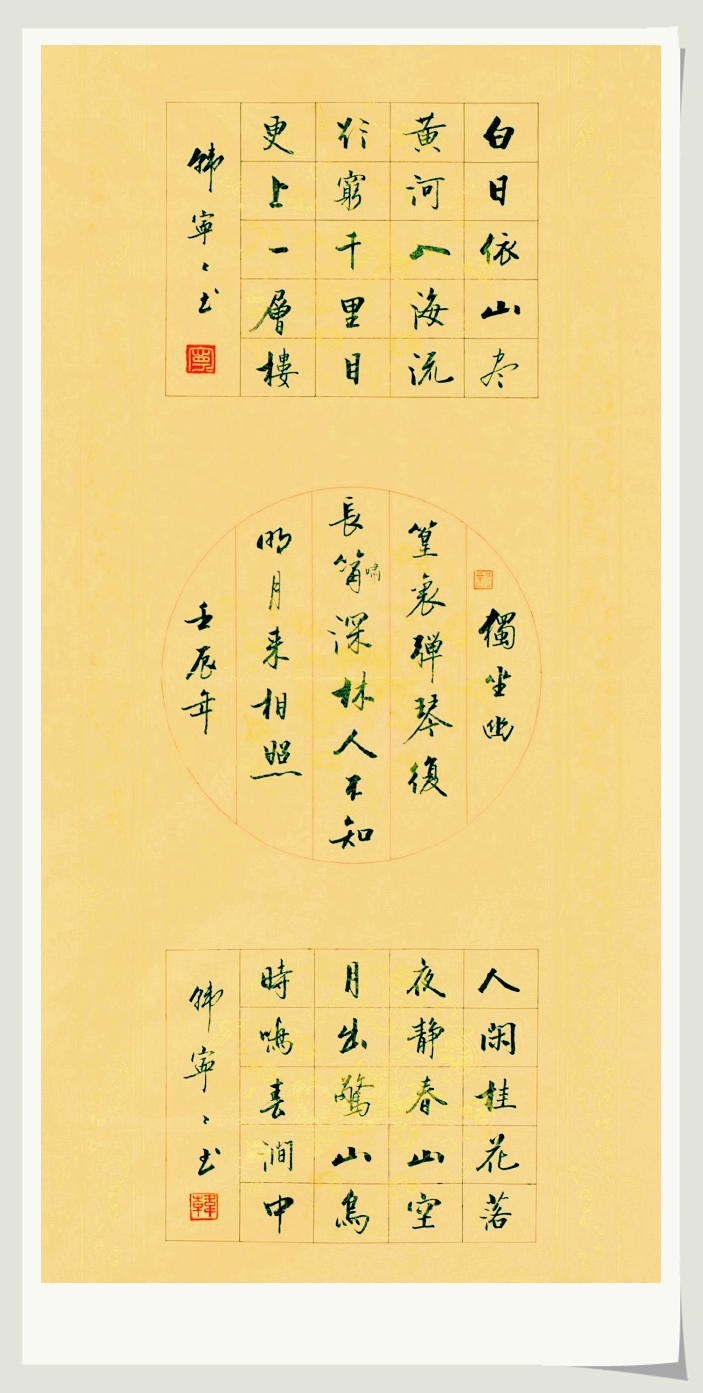 白日依山尽
黄河入海流
欲窮千里目
更上一層樓
韩寧〻书
獨坐幽
篁裏弹琴復
長嘯深林人不知
明月来相照
壬辰年
人閑桂花落
夜静春山空
月出驚山鳥
時鳴春澗中
韩寧〻书
韓